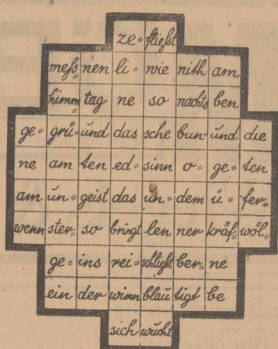 ze= fließt
mess nen li= wie nith am
himm tag ne so nachts ben
ge= grü= und das sche bun= und die
ne am ten ed= sinn o= ge= ten
am un= geist das un= dem ü= fer=
wenn ster= so bringt len ner kräf= wöl=
ge= ins rei= schließt ber= ne
ein der winn blau tigt be
sich wucht